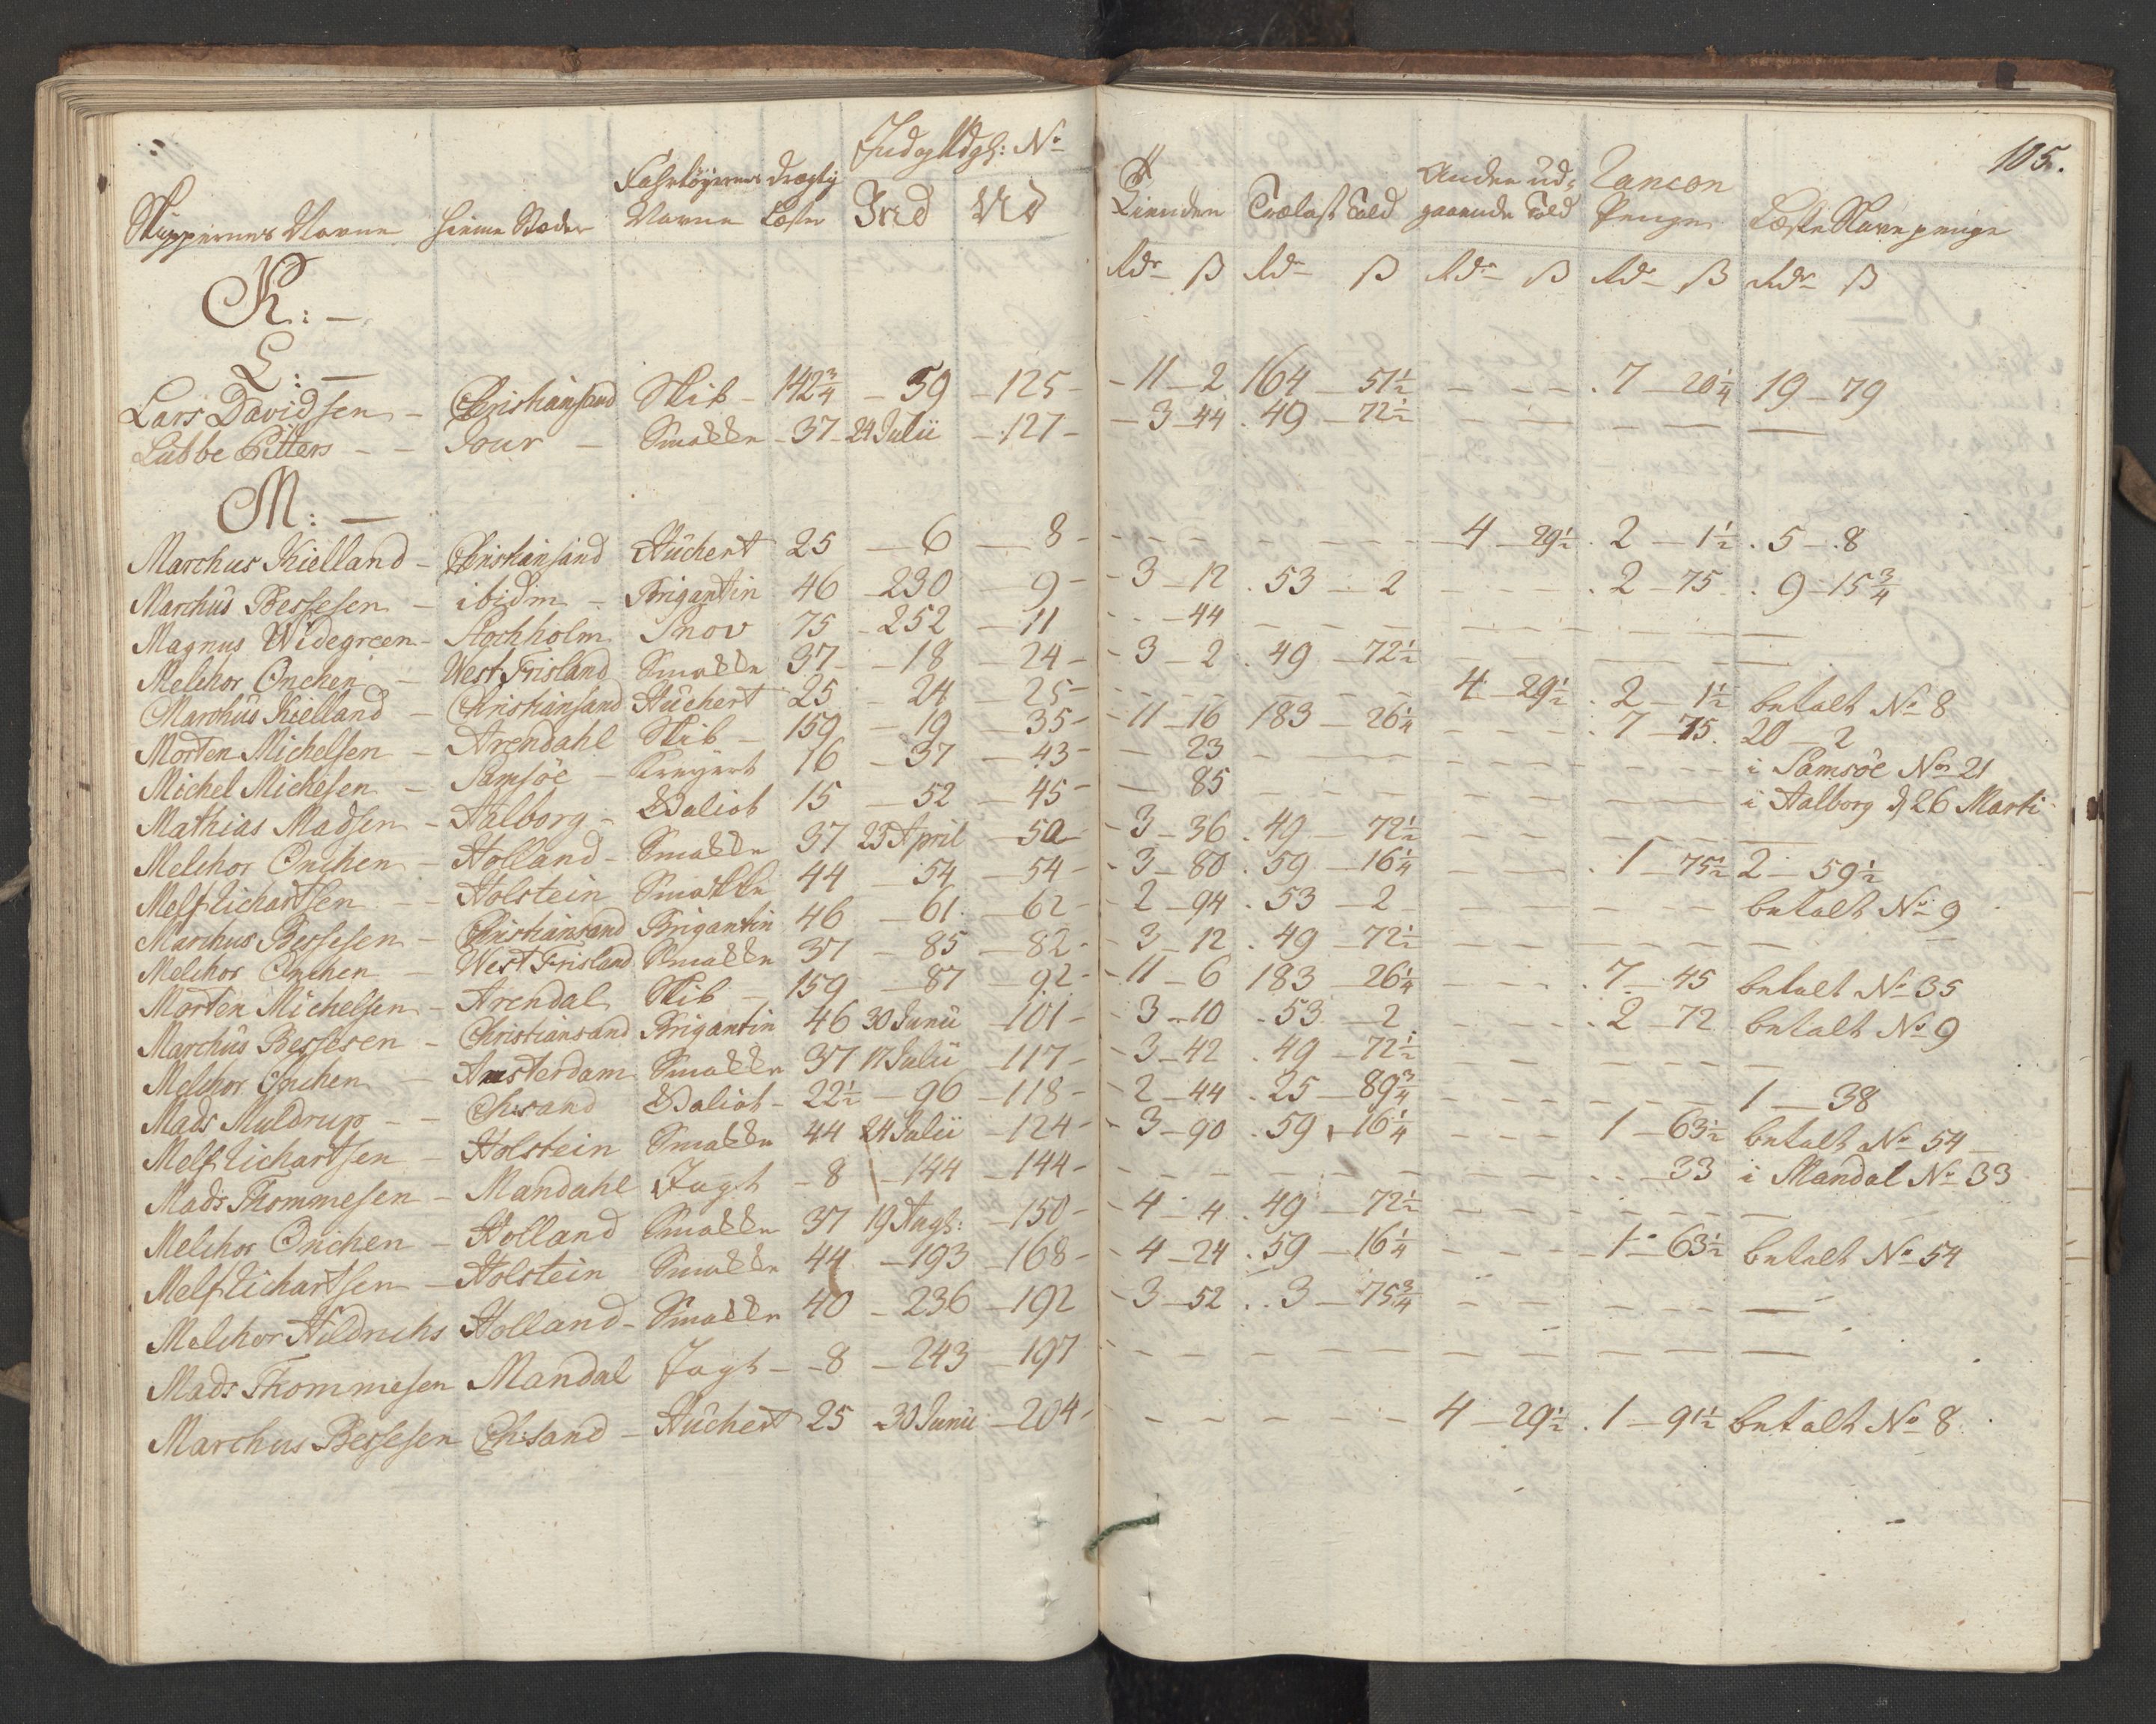 105.
Ind og Udgh: No
Skippernes Navne hiemme Stæder Fahrtöyernes Navne drægtig Læster Ind Ud Tienden Trælast Told Anden ud- gaaende Told Rancon Penge Læste Navnpenge
Rdr ß Rdr ß Rdr ß Rdr ß Rdr ß
K: —
L: —
Lars Davidsen - Christiansand Skib - 142 3/4 - 59 - 125 - 11 - 2 164 - 51 1/2 - - - 7 - 20 1/4 19 - 79
Lubbe Pitters - - Jour - Smakke - 37 - 24 Julii - 127 - 3 - 44 49 - 72 1/2 - - - -
M: —
Marchus Kielland - Christiansand Huchert 25 - 6 - 8 - - - 4 - 29 1/2 2 - 1 1/2 5 - 8
Marchus Bessesen - ibidm - Brigantin 46 - 230 - 9 - 3 - 12 53 - 2 - - - 2 - 75 9 - 15 3/4
Magnus Widegreen - Stochholm Snov 75 - 252 - 11 - 44 - - - -
Melchor Onchen - West Frisland Smakke 37 - 18 - 24 - 3 - 2 49 - 72 1/2 - - - -
Marchus Kielland - Christiansand Huchert 25 - 24 - 25 - - - 4 - 29 1/2 2 - 1 1/2 betalt No 8
Morten Michelsen - Arendahl Skib - 159 - 19 - 35 - 11 - 16 183 - 26 1/4 - - - 7 - 75 20 - 2
Michel Michelsen - Samsöe - Kreyert 16 - 37 - 43 - 23 - - - - i Samsöe No 21
Mathias Madsen - Aalborg - Galiot 15 - 52 - 45 - 85 - - - - i Aalborg d 26 Marti
Melchor Onchen - Holland - Smakke 37 23 April - 50 - 3 - 36 49 - 72 1/2 - - - -
Melf Richartsen - - Holstein Smakke 44 - 54 - 54 - 3 - 80 59 - 16 1/4 - - 1 - 75 1/2 2 - 59 1/2
Marchus Bessesen - Christiansand Brigantin 46 - 61 - 62 - 2 - 94 53 - 2 - - - - betalt No 9
Melchor Onchen - West Frisland Smakke 37 - 85 - 82 - 3 - 12 49 - 72 1/2 - - - -
Morten Michelsen - Arendal Skib - 159 - 87 - 92 - 11 - 6 183 - 26 1/4 - - - 7 - 45 betalt No 35
Marchus Bessesen - Christiansand Brigantin 46 30 Junii - 101 - 3 - 10 53 - 2 - - - 2 - 72 betalt No 9
Melchor Onchen - Amsterdam Smakke 37 17 Julii - 117 - 3 - 42 49 - 72 1/2 - - - -
Mads Muldrup - - Ch:sand Galiot - 22 1/2 - 96 - 118 - 2 - 44 25 - 89 3/4 - - - - 1 - 38
Melf Richartsen - Holstein Smakke 44 24 Julii - 124 - 3 - 90 59 - 16 1/4 - - - 1 - 63 1/2 betalt No 54
Mads Thommesen - Mandahl Jagt - 8 - 144 - 144 - - - - - 33 i Mandal No 33
Melchor Onchen - Holland Smakke 37 19 Augh: - 150 - 4 - 4 49 - 72 1/2 - - - -
Melf Richartsen - Holstein Smakke 44 - 193 - 168 - 4 - 24 59 - 16 1/4 - - - 1 - 63 1/2 betalt No 54
Melchor Hildrichs Holland - Smakke 40 - 236 - 192 - 3 - 52 3 - 75 3/4 - - - -
Mads Thommesen Mandal Jagt - 8 - 243 - 197 - - - - -
Marchus Bessesen Ch:sand - Huchert 25 - 30 Junii - 204 - - - 4 - 29 1/2 1 - 91 1/2 betalt No 8